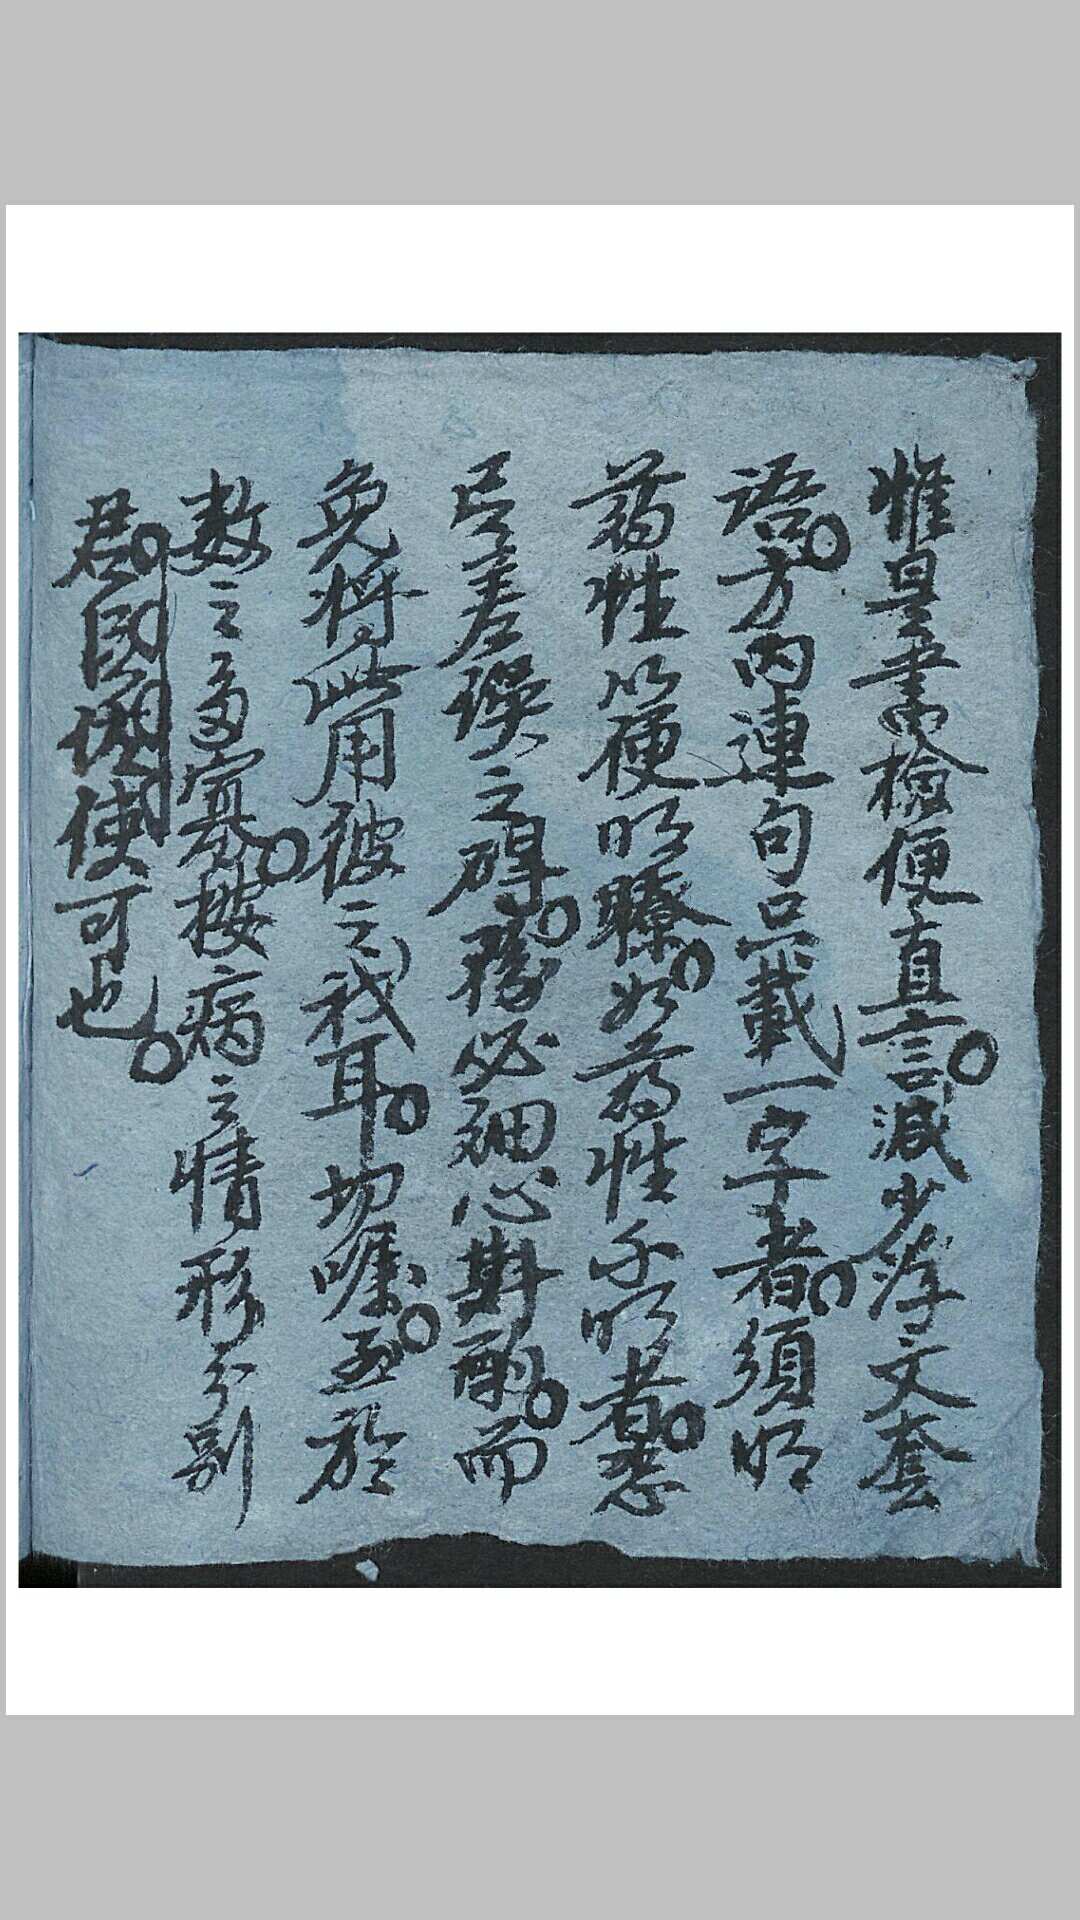 惟是書內檢便直言。減少浮文套
語。方內連句只載一字者。須明
药性以便明瞭。如药性不明者。恐
有差誤之碍。務必細心斟酌。而
免将此用彼之耳。切嘱。至於
数之多寡。按病之情形分别
君。臣。佐使可也。